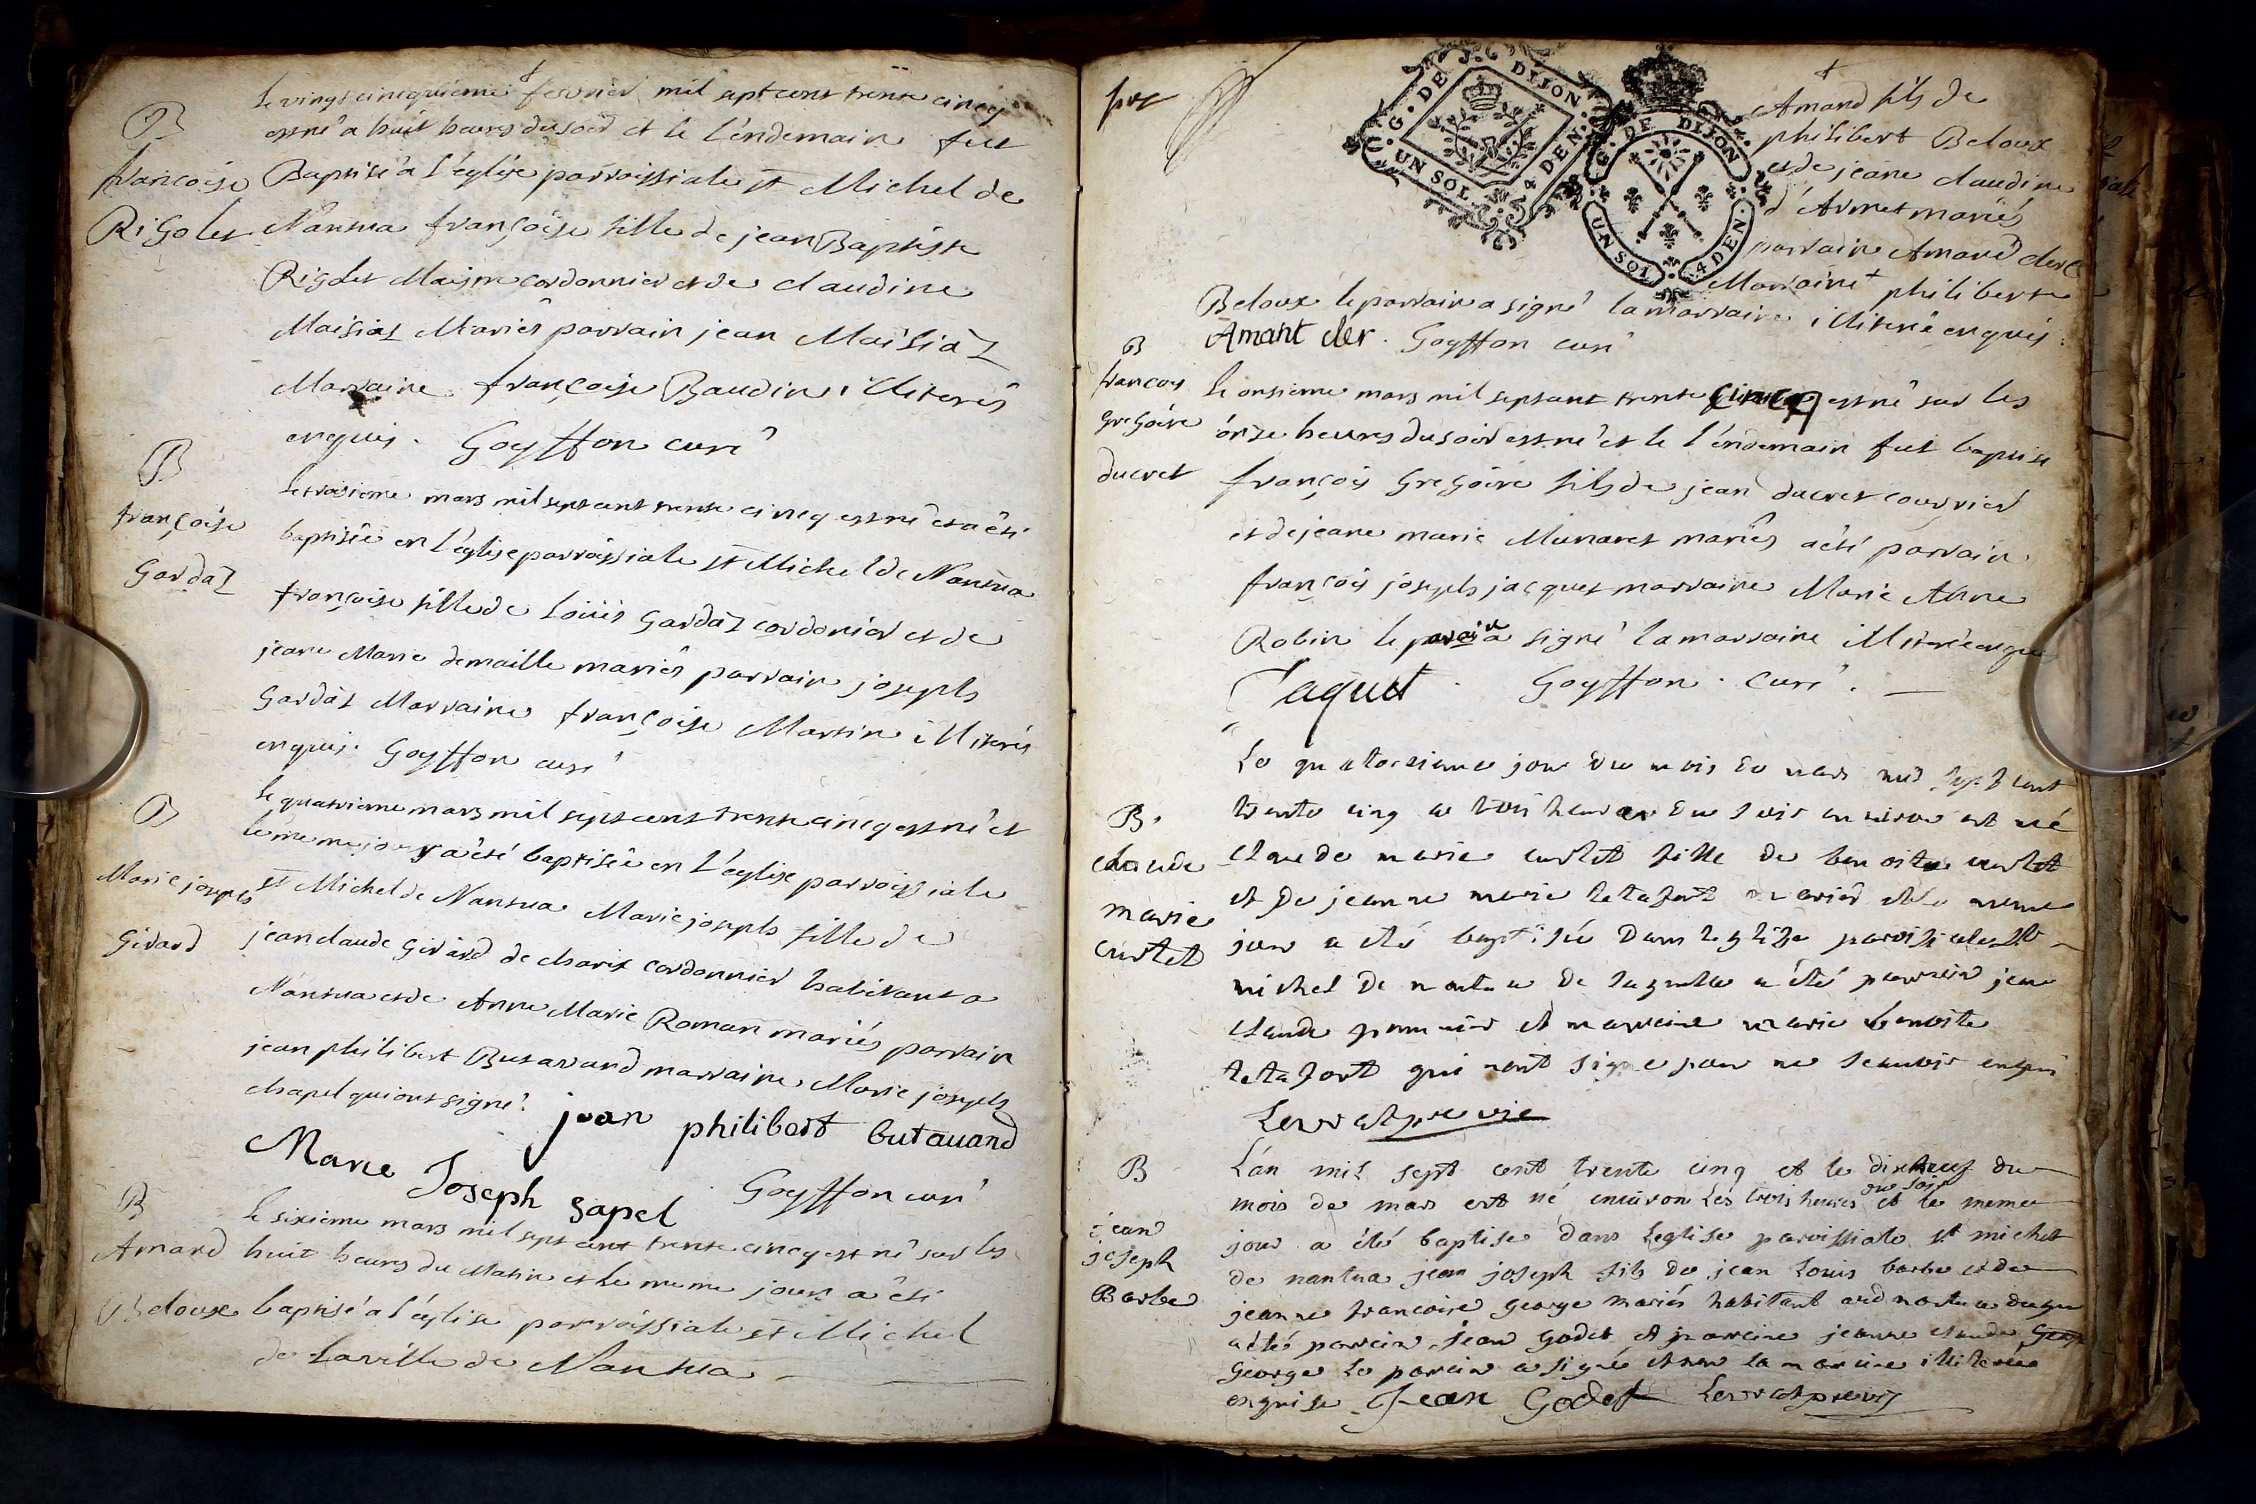 B
françoise
Rigolet
le vingt cincquieme fevrier mil sept cent trente cincq
est né a huit heures du soir et le l'endemain fut
Baptisé a l'église parroissiale st Michel de
Nantua françoise fille de jean Baptiste
Rigolet Maistre cordonnier et de claudine
Maisiat Mariés parrain jean Maisiat
Marraine françoise Baudin illiterés
enquis. Goyffon curé
B
françoise
Gardaz
le troisieme mars mil sept cent trente cincq est né et a été
baptisée en l'église parroissiale st Michel de Nantua
françoise fille de Loüis Gardaz cordonier et de
jeane Marie demaille mariés parrain joseph
Gardaz Marraine françoise Martin illiterés
enquis. Goyffon curé
B
Marie joseph
Girard
le quatrieme mars mil sept cent trente cincq est né et
le meme jour a été baptisée en l'église parroissiale
st Michel de Nantua Marie joseph fille de
jean claude Girard de charix cordonnier habitant a
Nantua et de Anne Marie Roman mariés parrain
jean philibert Butavand marraine Marie joseph
chapel qui ont signé.
jean philibert butauand
Marie Joseph sapel Goyffon curé
B
Amand
Beloux
le sixieme mars mil sept cent trente cincq est né sur les
huit heures du Matin et le meme jour a été
baptisé a l'église parroissiale st Michel
de La ville de Nantua
G. DE DIJON
UN SOL. 4 DEN.
G. DE DIJON
UN SOL 4 DEN.
Amand fils de
philibert Beloux
et de jeane claudine
d'Armet mariés
parrain Amand clerc
Marraine philiberte
Beloux le parrain a signé la marraine illiterée enquis.
Amant cler. Goyffon curé
B
francois
Gregoire
ducret
le onsieme mars mil sept cent trente cincq est né sur les
ônse heures du soir est né et le l'endemain fut baptisé
françois Gregoire fils de jean ducret courrier
et de jeane marie Munaret mariés a été parrain
françois joseph jacquet marraine Marie Anne
Robin le parain a signé la marraine illiterée enquis
Jaquet. Goyffon. Curé.
B.
claude
marie
curtet
Le quatorsieme jour du mois de mars mil sept cent
trente cinq a trois heures du soir environ est né
claude marie curtet fille de benoite curtet
et de jeanne marie tetafort mariés et le meme
jour a été baptisée dans leglize paroissiale st
michel de nantua de laquelle a été parrain jean
claude et marraine marie benoite
tetafort qui nont signe pour ne scauoir enquis
B
jean
joseph
Barbe
L'an mil sept cent trente cinq et le dixneuf du
mois de mars est né enuiron les trois heures du soir et le meme
jour a été baptisé dans leglise paroissiale st michel
de nantua jean joseph fils de jean Louis barbe et de
jeanne francoise george mariés habitant aud nantua duquel
a été parrain jean godet et marraine jeanne claude
George le parrain a signé et non la maraine illiterée
enquise Jean Godet